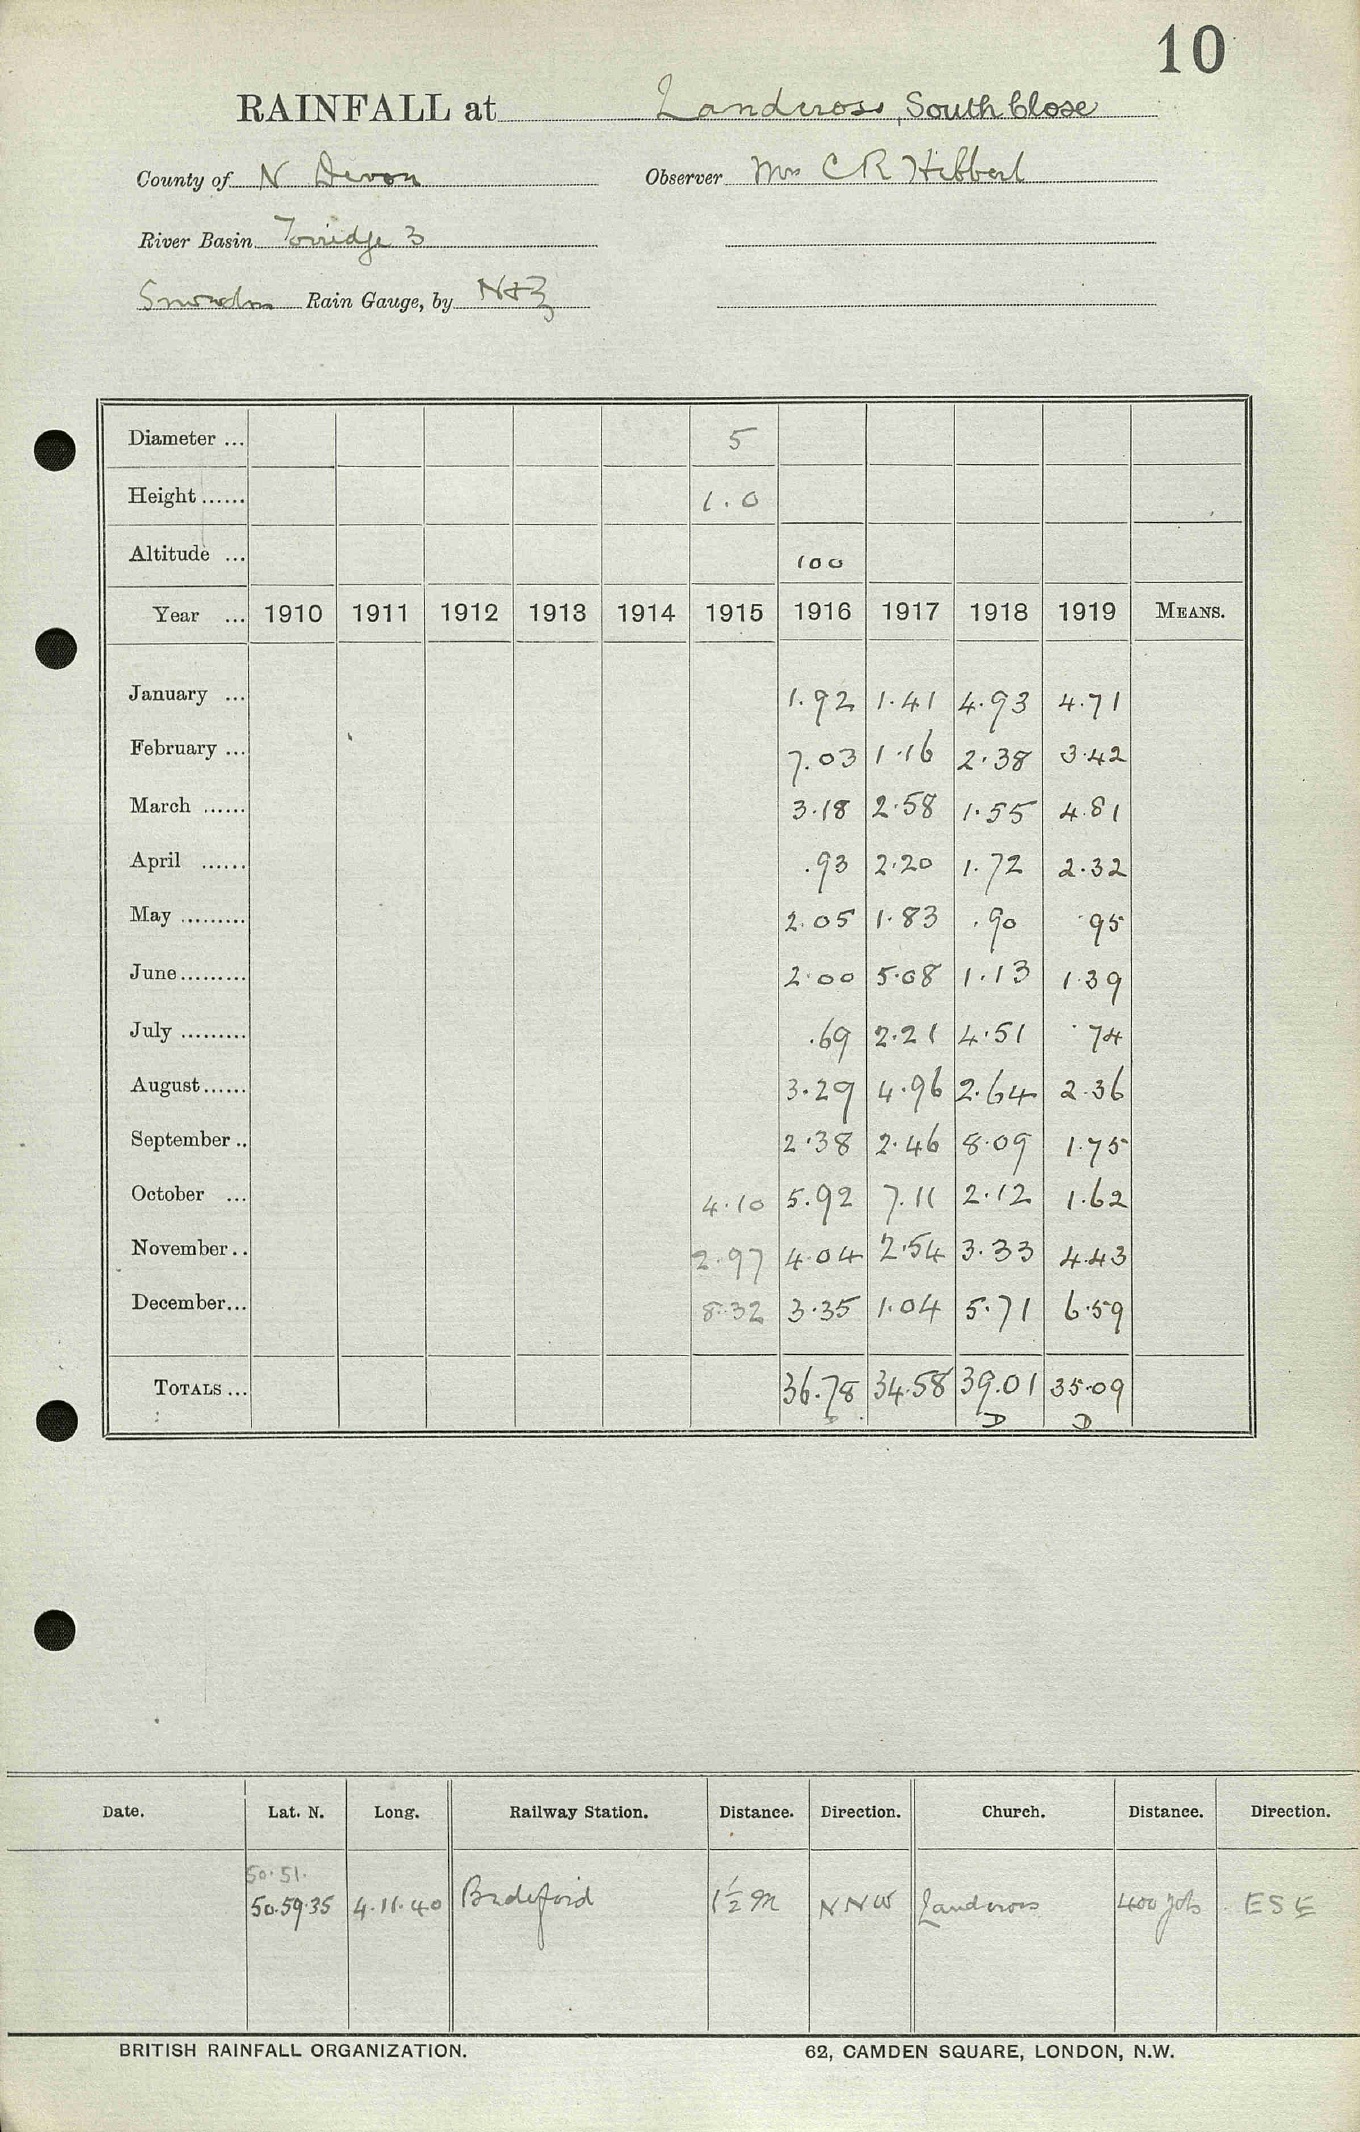 10
RAINFALL at Landcross, South Close
County of N Devon Observer Mrs C R Hibbert
River Basin Torridge 3
Snowdon Rain Gauge, by N+Z
Diameter ... 5
Height ...... 1.0
Altitude ... 100
Year ... 1910 1911 1912 1913 1914 1915 1916 1917 1918 1919 MEANS.
January ... 1.92 1.41 4.93 4.71
February ... 7.03 1.16 2.38 3.42
March ...... 3.18 2.58 1.55 4.81
April ...... .93 2.20 1.72 2.32
May ......... 2.05 1.83 .90 .95
June ......... 2.00 5.08 1.13 1.39
July ......... .69 2.21 4.51 .74
August ...... 3.29 4.96 2.64 2.36
September .. 2.38 2.46 8.09 1.75
October ... 4.10 5.92 7.11 2.12 1.62
November .. 2.97 4.04 2.54 3.33 4.43
December ... 8.32 3.35 1.04 5.71 6.59
TOTALS ... 36.78 34.58 39.01 35.09
D D D
Date. Lat. N. Long. Railway Station. Distance. Direction. Church. Distance. Direction.
50.51.
50.59.35 4.11.40 Bideford 1½ M NNW Landcross 400 yds ESE
BRITISH RAINFALL ORGANIZATION. 62, CAMDEN SQUARE, LONDON, N.W.